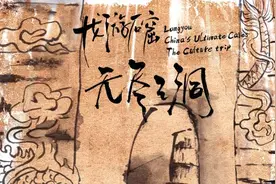 龙游石窟
Longyou
China's Ultimate Cave
The Culture trip
无尽之洞